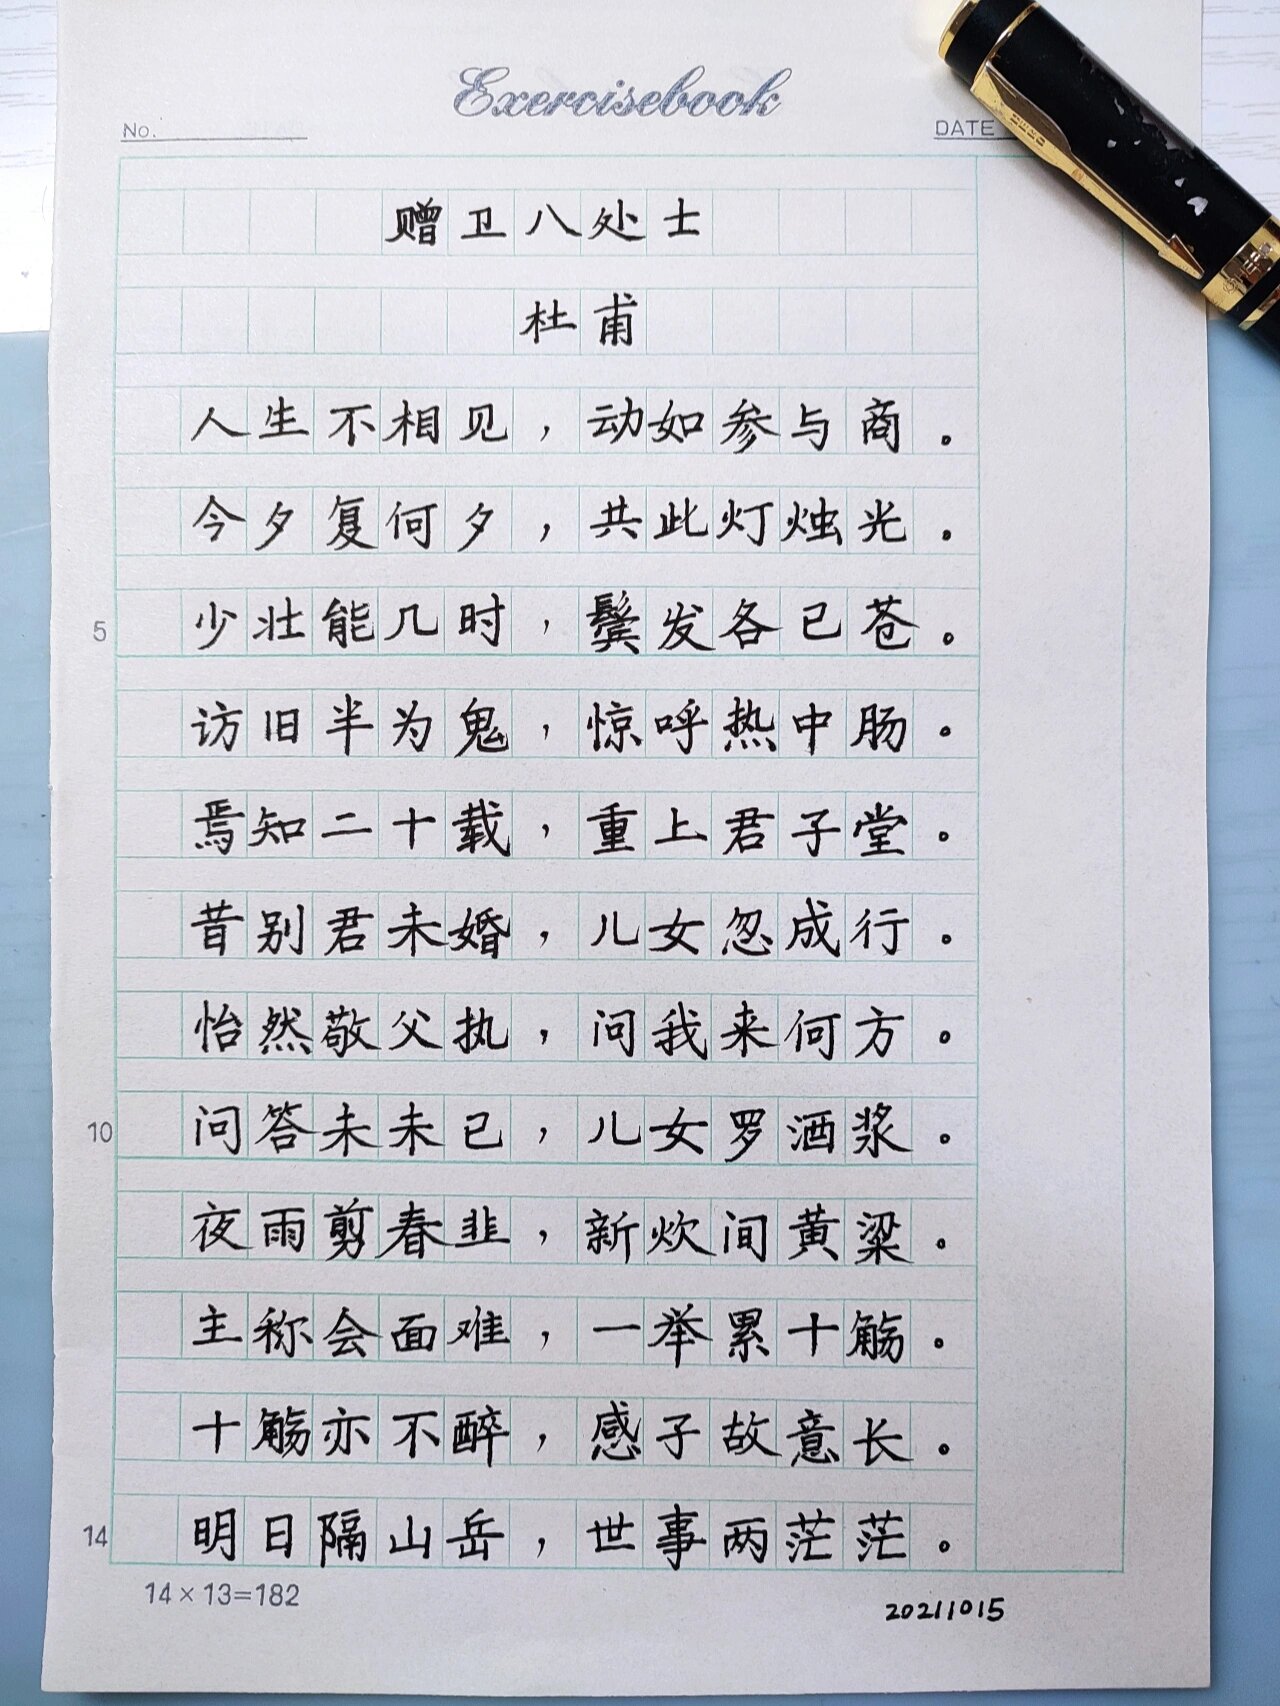 Exercisebook
No.
DATE
赠卫八处士
杜甫
人生不相见，动如参与商。
今夕复何夕，共此灯烛光。
5 少壮能几时，鬓发各已苍。
访旧半为鬼，惊呼热中肠。
焉知二十载，重上君子堂。
昔别君未婚，儿女忽成行。
怡然敬父执，问我来何方。
10 问答未未已，儿女罗酒浆。
夜雨剪春韭，新炊间黄粱。
主称会面难，一举累十觞。
十觞亦不醉，感子故意长。
14 明日隔山岳，世事两茫茫。
14×13=182
20211015